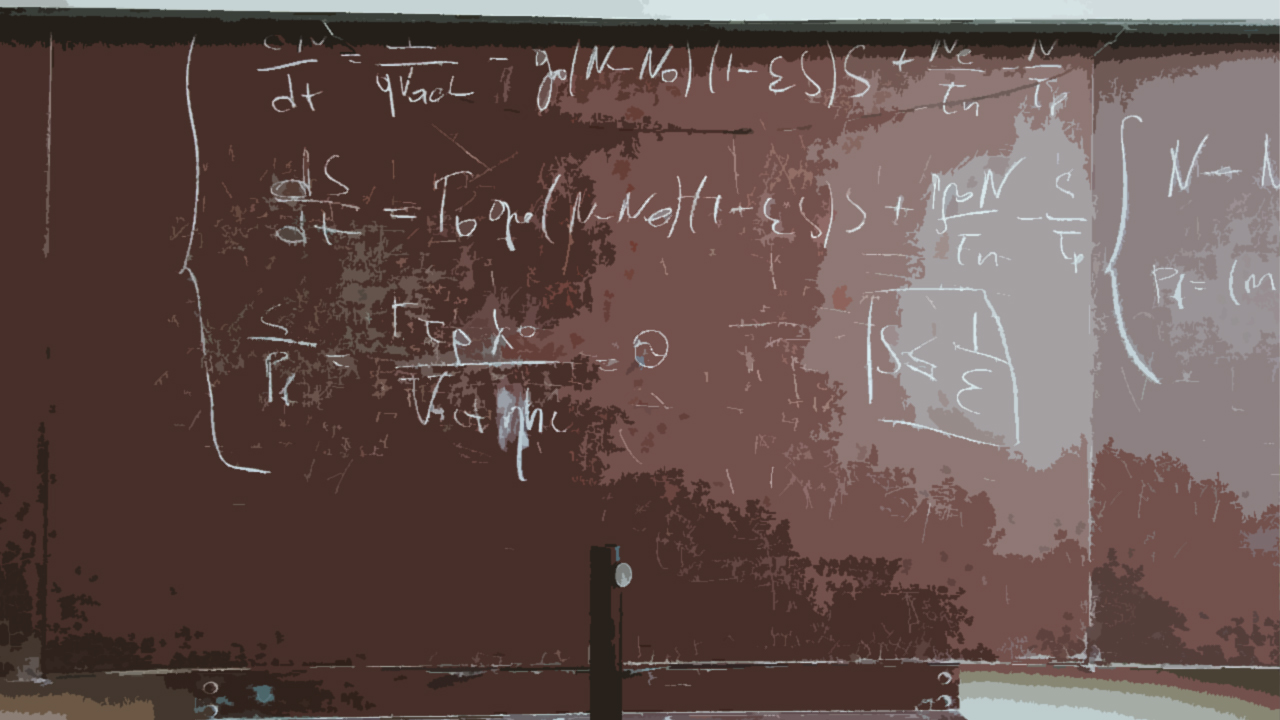 dN/dt = I/qVact - g0(N-N0)(1-εS)S + Ne/τn - N/τp
dS/dt = Γ0 g0(N-N0)(1-εS)S + Γβ0N/τn - S/τp
S/Pf = Γτpλ0/Vactηhc =
S ≤ 1/ε
N - N
Pf = (m